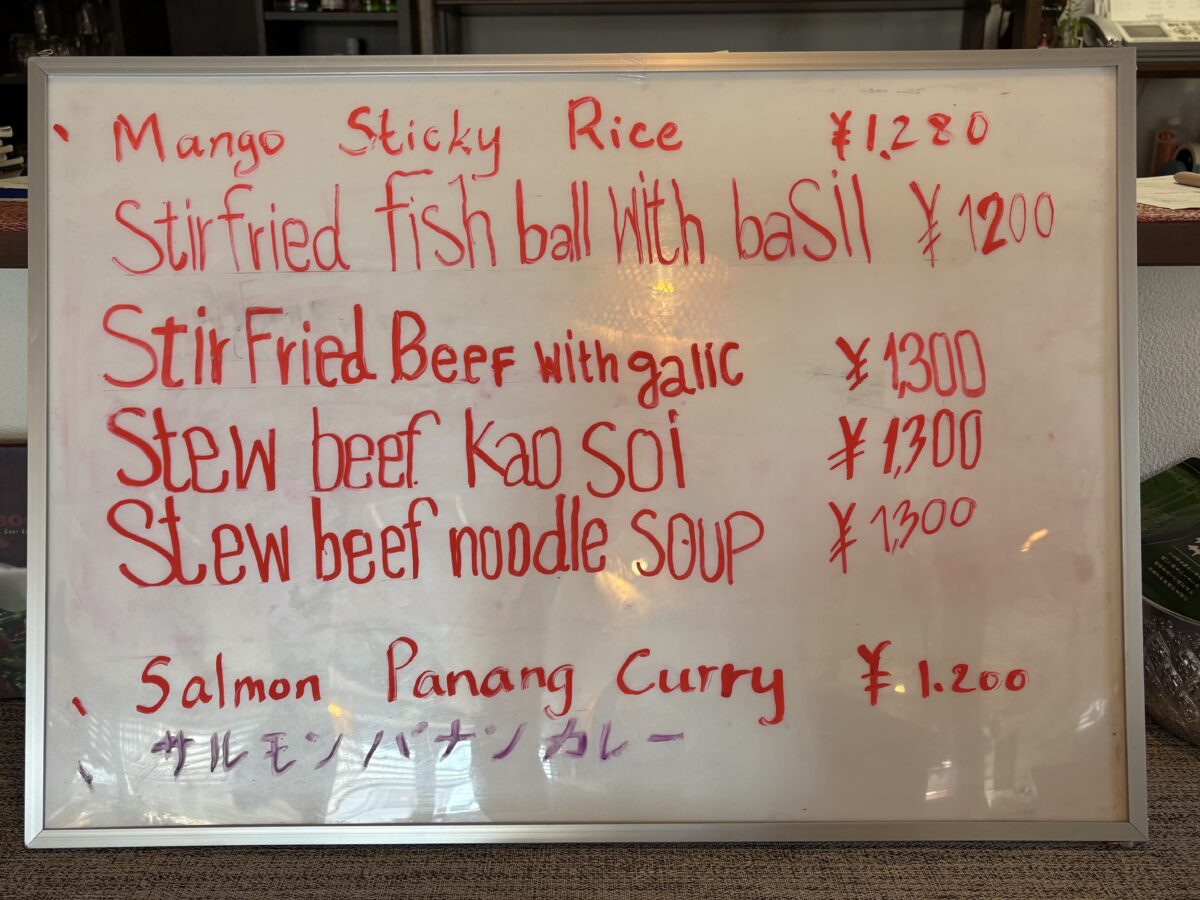 Mango Sticky Rice ¥1.280
Stirfried fish ball with basil ¥1200
Stir Fried Beef with galic ¥1,300
Stew beef Kao Soi ¥1,300
Stew beef noodle soup ¥1,300
Salmon Panang Curry ¥1.200
サルモンパナンカレー